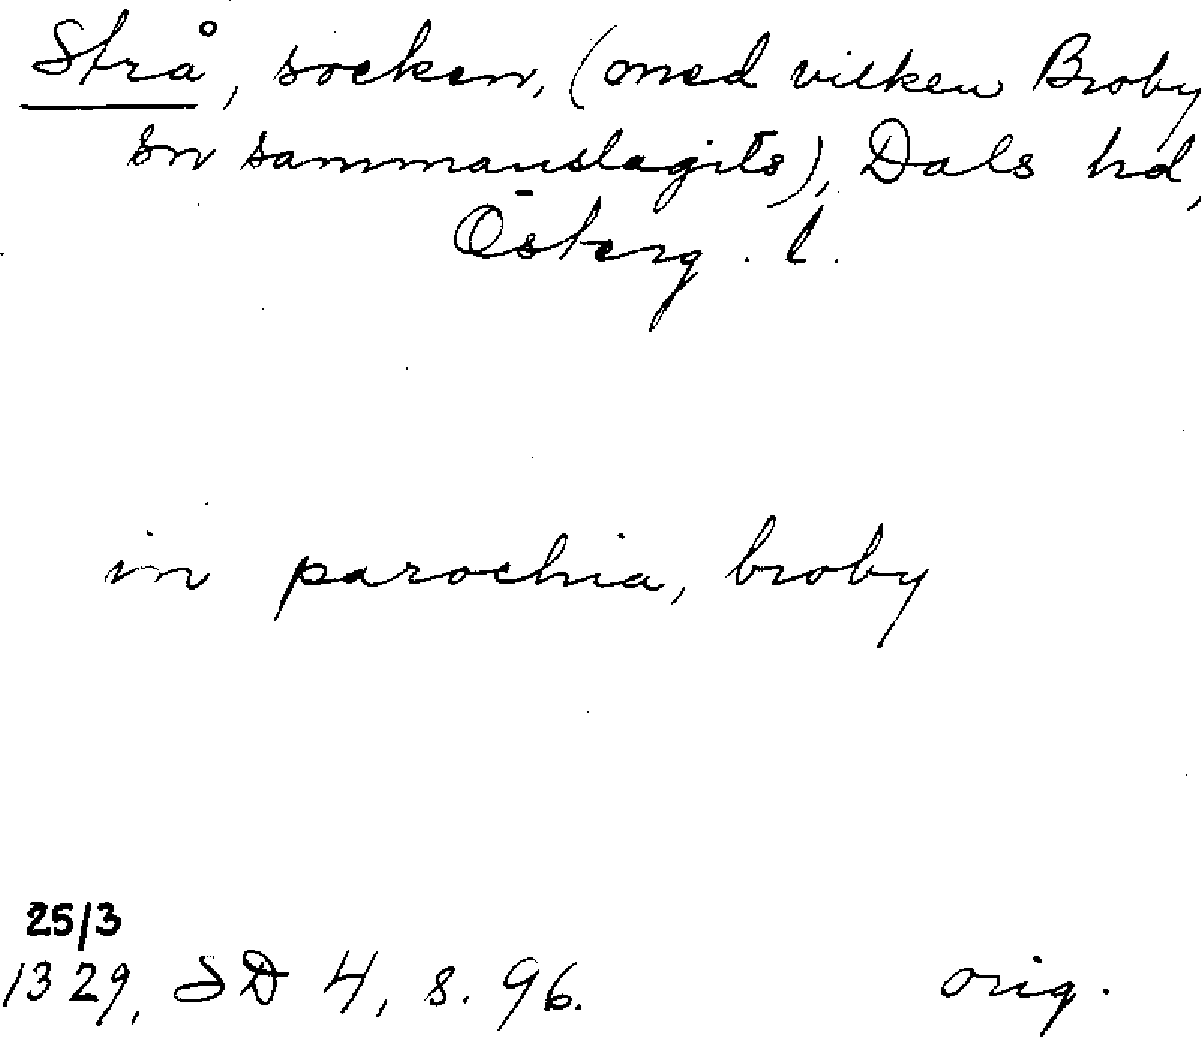 Strå, socken, (med vilken Broby
sn sammanslagits), Dals hd,
Österg. l.
in parochia, broby
25/3
1329, SD 4, s. 96. orig.